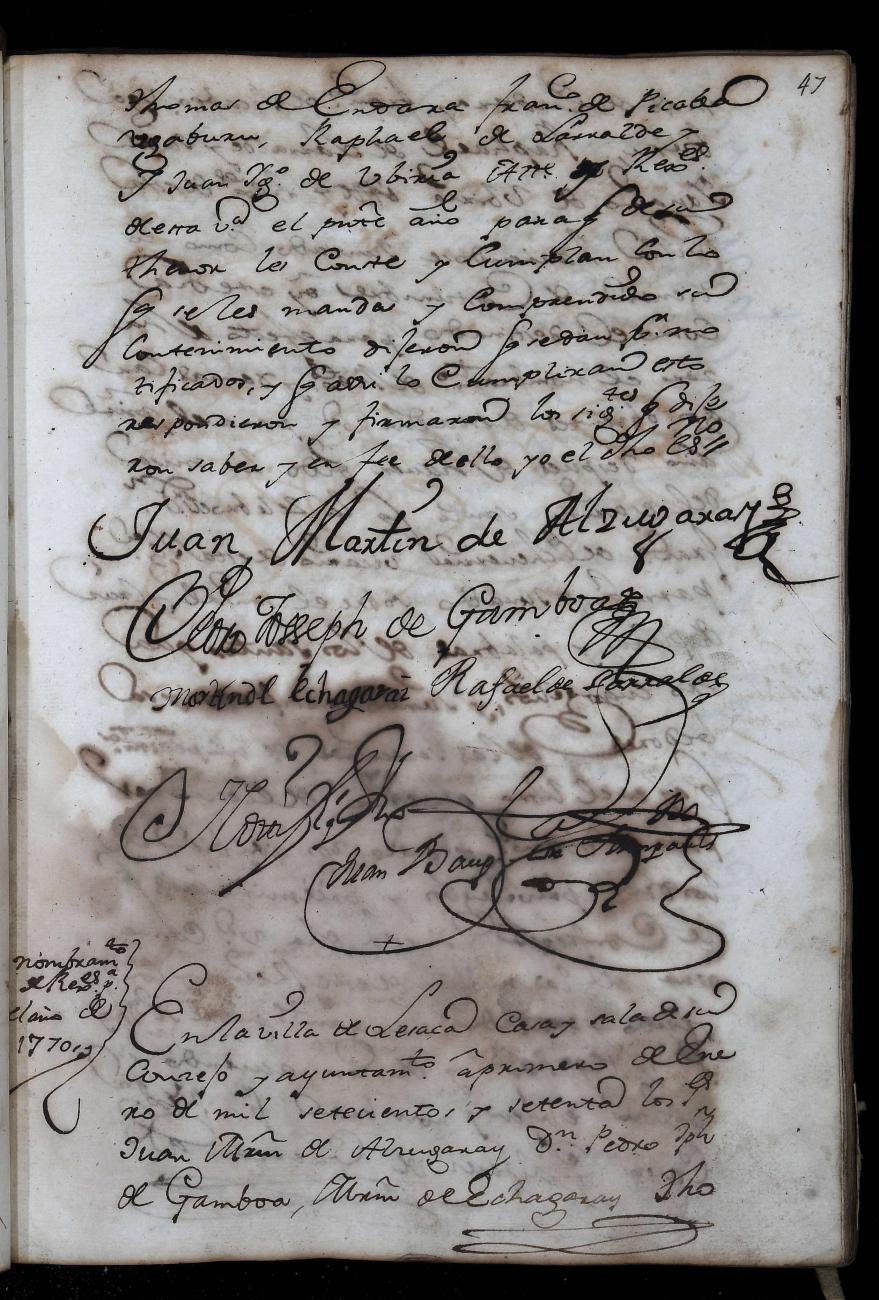 47
Thomas de Endara, franco de Picabea
Raphael de Larralde y
Y Juan Igo de Ubiria Atte y Rexes
desta va el pnte año para q de su
thenor les Conste y Cumplan con lo
q se les manda y Comprendido su
Contenimiento dijeron q se dan pr no
tificados, y q assi lo Cumpliran esto
respondieron y firmaron los sigtes q dije
ron saber y en fee de ello yo el dho Essno
Juan Martin de Alzugaray
Pedro Joseph de Gamboa
Martin de Echagarai Rafael de Larralde
Juan Baup
nombramto
de Rexes pa
el año de
1770
En la villa de Lesaca Casa y sala de su
Concejo y ayuntamto a primero de Ene
ro de mil setecientos y setenta los Srs
Juan Mrn de Alzugaray Dn Pedro Jph
de Gamboa, Mrn de Echagaray Tho